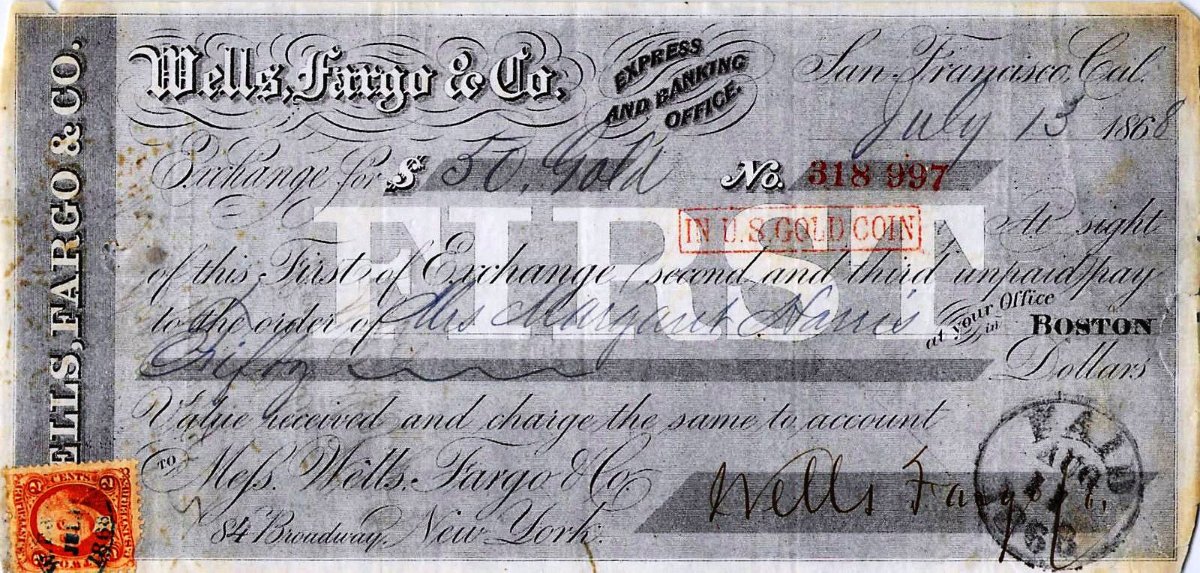 WELLS, FARGO & CO.
Wells, Fargo & Co.
EXPRESS
AND BANKING
OFFICE.
San Francisco, Cal.
July 13 1868
Exchange for $ 50. Gold No. 318 997
FIRST
IN U.S. GOLD COIN
At sight
of this First of Exchange (second and third unpaid) pay
to the order of Mrs. Margaret Harris at your Office in BOSTON
Fifty Dollars
Value received and charge the same to account
TO Mess. Wells, Fargo & Co
84 Broadway, New York.
Wells Fargo & Co.
PAID
AUG
68
2 CENTS 2